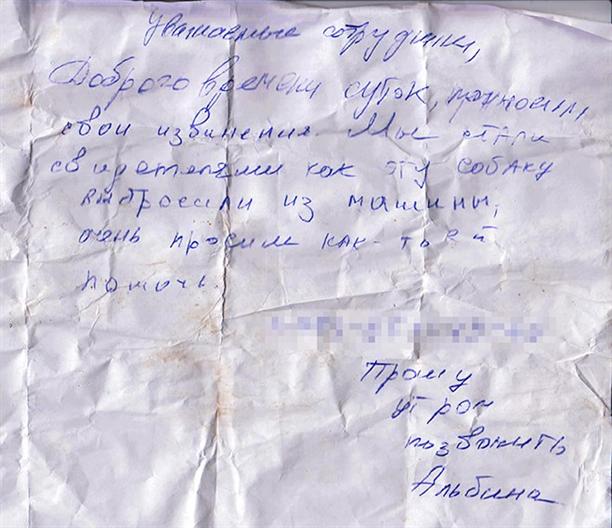 Уважаемые сотрудники,
Доброго времени суток, приносим
свои извинения. Мы стали
свидетелями как эту собаку
выбросили из машины,
очень просим как-то ей
помочь.
Прошу
утром
позвонить
Альбина